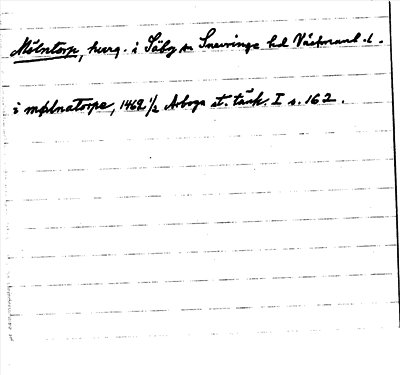 Mölntorp, herrg. i Säby sn Snevringe hd Västmanl. l.
i mølnatorpa, 1462 1/2 Arboga st. tänk. I s. 162.